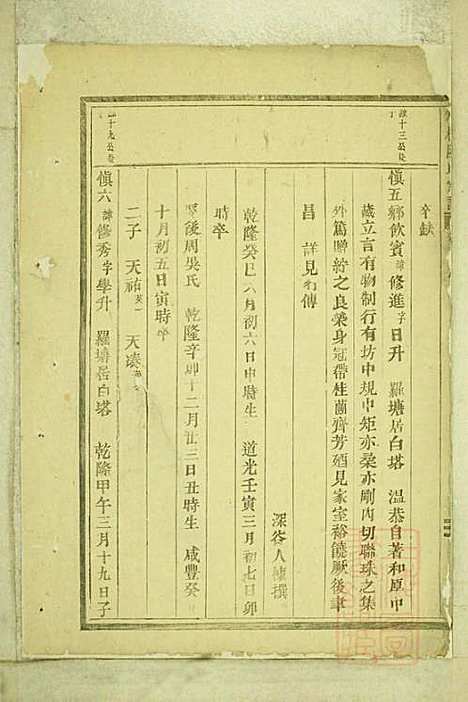 卒缺
慎五 鄉飲賓 諱 修進 字 日升 羅塘居白塔 溫恭自著和厚中
藏立言有物制行有坊中規中矩亦柔亦剛內切聯珠之集
外篤聯紵之良榮身冠帶桂蘭齊芳 見家室裕饒厥後聿
昌 詳見行傳
深谷人 撰
乾隆癸巳八月初六日申時生 道光壬寅三月初七日卯
時卒
娶後周吳氏 乾隆辛卯十二月廿三日丑時生 咸豐癸
十月初五日寅時卒
二子 天祐 英一 天湊
慎六 諱 修秀 字 學升 羅塘居白塔 乾隆甲午三月十九日子
十三公
十九公